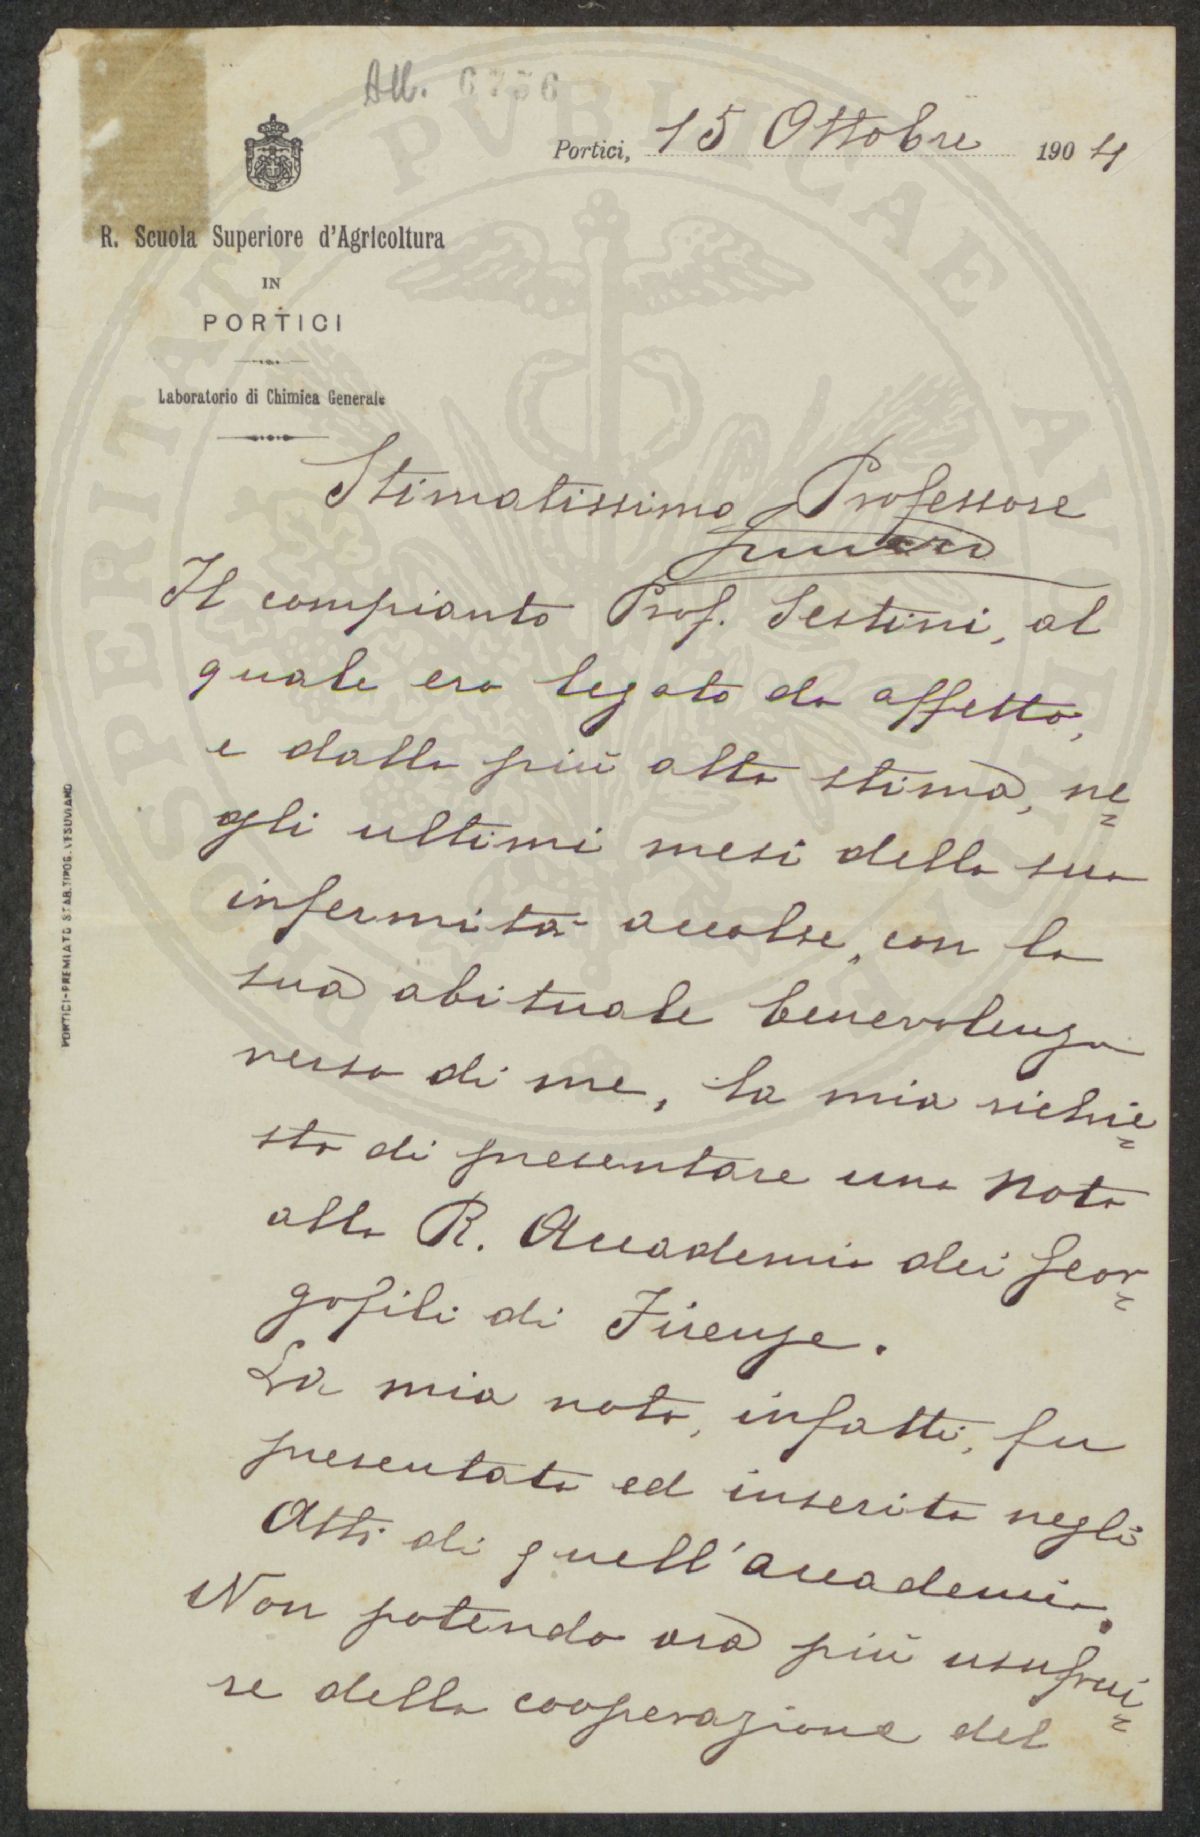 All. 6756
Portici, 15 Ottobre 1904
R. Scuola Superiore d'Agricoltura
IN
PORTICI
Laboratorio di Chimica Generale
Stimatissimo Professore
Il compianto Prof. Sestini, al
quale ero legato da affetto,
e dalla più alta stima, ne=
gli ultimi mesi della sua
infermità accolse, con la
sua abituale benevolenza
verso di me, la mia richie=
sta di presentare una Nota
alla R. Accademia dei Geor=
gofili di Firenze.
La mia nota, infatti, fu
presentata ed inserita negli
Atti di quell'accademia.
Non potendo ora più usufrui=
re della cooperazione del
PORTICI-PREMIATO STAB. TIPOG. VESUVIANO
PROSPERITATI PVBLICAE AVGENDAE